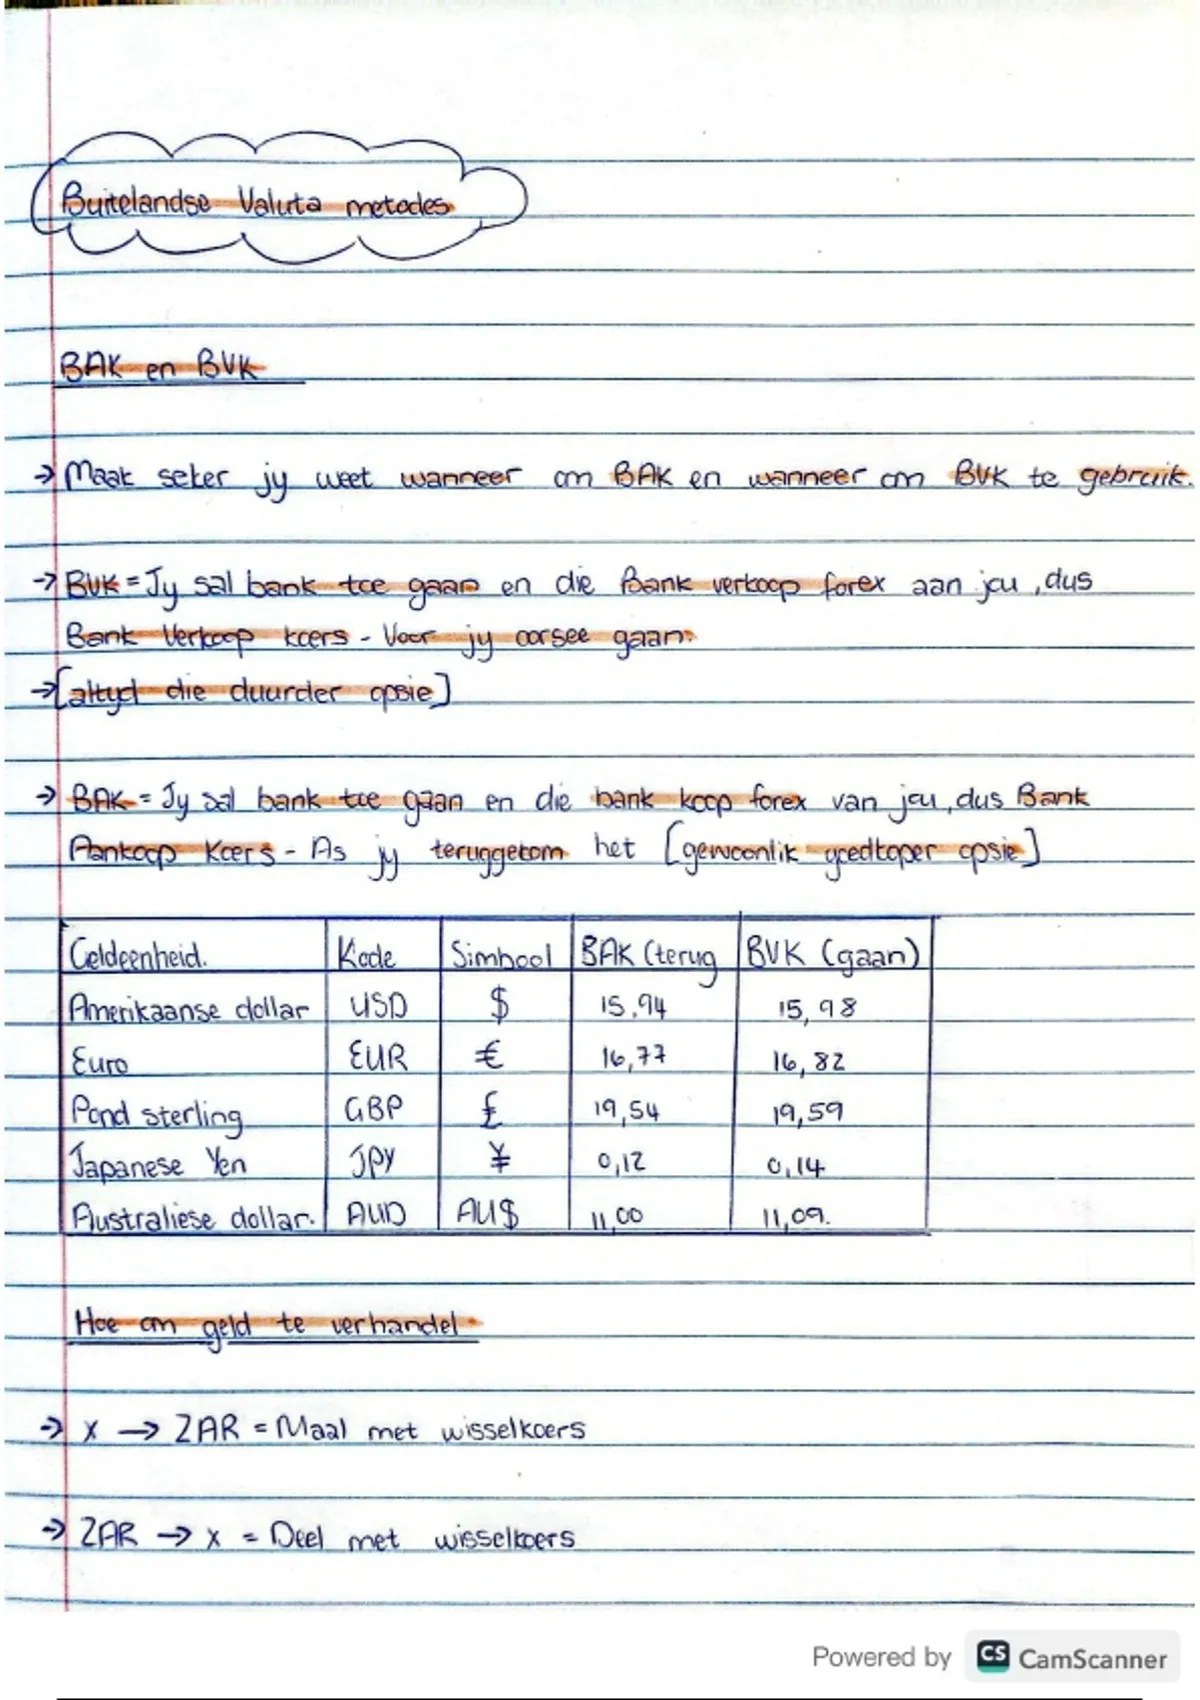 Buitelandse Valuta metodes
BAK en BVK
→ Maak seker jy weet wanneer om BAK en wanneer om BVK te gebruik.
→ BVK = Jy sal bank toe gaan en die Bank verkoop forex aan jou, dus
Bank Verkoop koers - Voor jy oorsee gaan.
→ [altyd die duurder opsie]
→ BAK = Jy sal bank toe gaan en die bank koop forex van jou, dus Bank
Aankoop Koers - As jy teruggekom het [gewoonlik goedkoper opsie]
Geldeenheid. Kode Simbool BAK (terug BVK (gaan)
Amerikaanse dollar USD $ 15,94 15,98
Euro EUR € 16,77 16,82
Pond sterling GBP £ 19,54 19,59
Japanese Yen JPY ¥ 0,12 0,14
Australiese dollar. AUD AU$ 11,00 11,09.
Hoe om geld te verhandel.
→ X → ZAR = Maal met wisselkoers
→ ZAR → X = Deel met wisselkoers
Powered by CS CamScanner